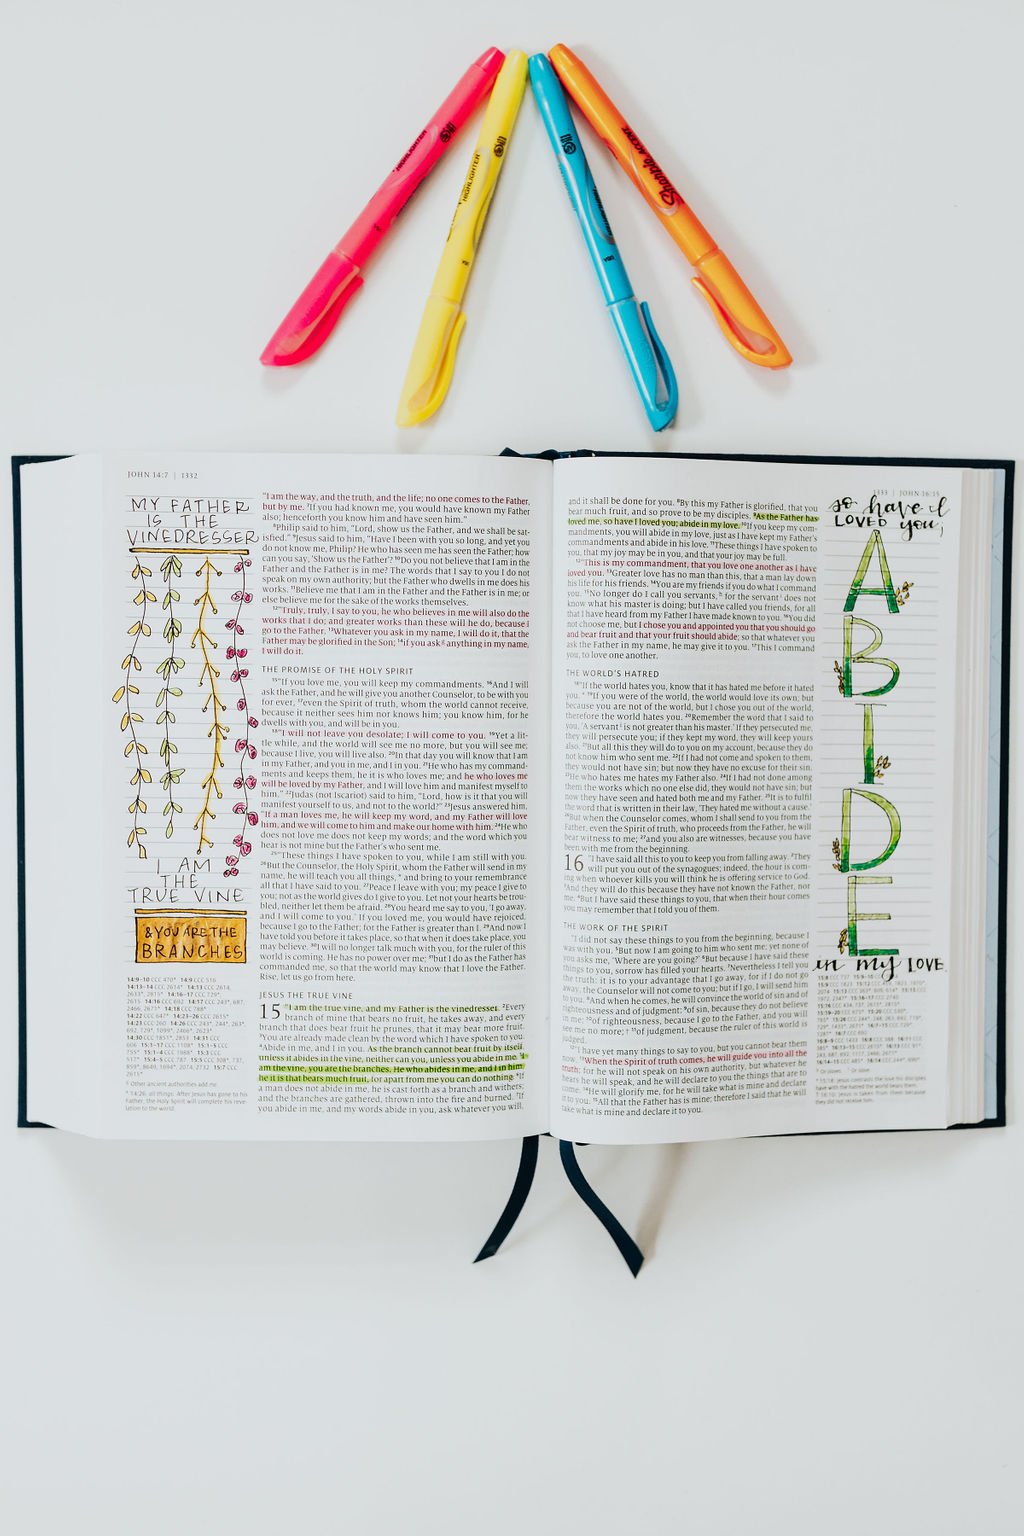 HIGHLIGHTER
HIGHLIGHTER
Sharpie ACCENT
JOHN 14:7 | 1332
MY FATHER
IS THE
VINEDRESSER
I AM
THE
TRUE VINE
& YOU ARE THE
BRANCHES
"I am the way, and the truth, and the life; no one comes to the Father,
but by me. ⁷If you had known me, you would have known my Father
also; henceforth you know him and have seen him."
⁸Philip said to him, "Lord, show us the Father, and we shall be sat-
isfied." ⁹Jesus said to him, "Have I been with you so long, and yet you
do not know me, Philip? He who has seen me has seen the Father; how
can you say, 'Show us the Father'? ¹⁰Do you not believe that I am in the
Father and the Father is in me? The words that I say to you I do not
speak on my own authority; but the Father who dwells in me does his
works. ¹¹Believe me that I am in the Father and the Father is in me; or
else believe me for the sake of the works themselves.
¹²"Truly, truly, I say to you, he who believes in me will also do the
works that I do; and greater works than these will he do, because I
go to the Father. ¹³Whatever you ask in my name, I will do it, that the
Father may be glorified in the Son; ¹⁴if you ask anything in my name,
I will do it.
THE PROMISE OF THE HOLY SPIRIT
¹⁵"If you love me, you will keep my commandments. ¹⁶And I will
ask the Father, and he will give you another Counselor, to be with you
for ever, ¹⁷even the Spirit of truth, whom the world cannot receive,
because it neither sees him nor knows him; you know him, for he
dwells with you, and will be in you.
¹⁸"I will not leave you desolate; I will come to you. ¹⁹Yet a lit-
tle while, and the world will see me no more, but you will see me;
because I live, you will live also. ²⁰In that day you will know that I am
in my Father, and you in me, and I in you. ²¹He who has my command-
ments and keeps them, he it is who loves me; and he who loves me
will be loved by my Father, and I will love him and manifest myself to
him." ²²Judas (not Iscariot) said to him, "Lord, how is it that you will
manifest yourself to us, and not to the world?" ²³Jesus answered him,
"If a man loves me, he will keep my word, and my Father will love
him, and we will come to him and make our home with him. ²⁴He who
does not love me does not keep my words; and the word which you
hear is not mine but the Father's who sent me.
²⁵"These things I have spoken to you, while I am still with you.
²⁶But the Counselor, the Holy Spirit, whom the Father will send in my
name, he will teach you all things, * and bring to your remembrance
all that I have said to you. ²⁷Peace I leave with you; my peace I give to
you; not as the world gives do I give to you. Let not your hearts be trou-
bled, neither let them be afraid. ²⁸You heard me say to you, 'I go away,
and I will come to you.' If you loved me, you would have rejoiced,
because I go to the Father; for the Father is greater than I. ²⁹And now I
have told you before it takes place, so that when it does take place, you
may believe. ³⁰I will no longer talk much with you, for the ruler of this
world is coming. He has no power over me; ³¹but I do as the Father has
commanded me, so that the world may know that I love the Father.
Rise, let us go from here.
JESUS THE TRUE VINE
15 "I am the true vine, and my Father is the vinedresser. ²Every
branch of mine that bears no fruit, he takes away, and every
branch that does bear fruit he prunes, that it may bear more fruit.
³You are already made clean by the word which I have spoken to you.
⁴Abide in me, and I in you. As the branch cannot bear fruit by itself,
unless it abides in the vine, neither can you, unless you abide in me. ⁵I
am the vine, you are the branches. He who abides in me, and I in him,
he it is that bears much fruit, for apart from me you can do nothing. ⁶If
a man does not abide in me, he is cast forth as a branch and withers;
and the branches are gathered, thrown into the fire and burned. ⁷If
you abide in me, and my words abide in you, ask whatever you will,
ᵍ Other ancient authorities add me.
* 14:26, all things: After Jesus has gone to his
Father, the Holy Spirit will complete his reve-
lation to the world.
1333 | JOHN 16:15
so have I
LOVED you;
ABIDE
in my LOVE.
and it shall be done for you. ⁸By this my Father is glorified, that you
bear much fruit, and so prove to be my disciples. ⁹As the Father has
loved me, so have I loved you; abide in my love. ¹⁰If you keep my com-
mandments, you will abide in my love, just as I have kept my Father's
commandments and abide in his love. ¹¹These things I have spoken to
you, that my joy may be in you, and that your joy may be full.
¹²"This is my commandment, that you love one another as I have
loved you. ¹³Greater love has no man than this, that a man lay down
his life for his friends. ¹⁴You are my friends if you do what I command
you. ¹⁵No longer do I call you servants, for the servant does not
know what his master is doing; but I have called you friends, for all
that I have heard from my Father I have made known to you. ¹⁶You did
not choose me, but I chose you and appointed you that you should go
and bear fruit and that your fruit should abide; so that whatever you
ask the Father in my name, he may give it to you. ¹⁷This I command
you, to love one another.
THE WORLD'S HATRED
¹⁸"If the world hates you, know that it has hated me before it hated
you. * ¹⁹If you were of the world, the world would love its own; but
because you are not of the world, but I chose you out of the world,
therefore the world hates you. ²⁰Remember the word that I said to
you, 'A servant is not greater than his master.' If they persecuted me,
they will persecute you; if they kept my word, they will keep yours
also. ²¹But all this they will do to you on my account, because they do
not know him who sent me. ²²If I had not come and spoken to them,
they would not have sin; but now they have no excuse for their sin.
²³He who hates me hates my Father also. ²⁴If I had not done among
them the works which no one else did, they would not have sin; but
now they have seen and hated both me and my Father. ²⁵It is to fulfil
the word that is written in their law, 'They hated me without a cause.'
²⁶But when the Counselor comes, whom I shall send to you from the
Father, even the Spirit of truth, who proceeds from the Father, he will
bear witness to me; ²⁷and you also are witnesses, because you have
been with me from the beginning.
16 "I have said all this to you to keep you from falling away. ²They
will put you out of the synagogues; indeed, the hour is com-
ing when whoever kills you will think he is offering service to God.
³And they will do this because they have not known the Father, nor
me. ⁴But I have said these things to you, that when their hour comes
you may remember that I told you of them.
THE WORK OF THE SPIRIT
"I did not say these things to you from the beginning, because I
was with you. ⁵But now I am going to him who sent me; yet none of
you asks me, 'Where are you going?' ⁶But because I have said these
things to you, sorrow has filled your hearts. ⁷Nevertheless I tell you
the truth: it is to your advantage that I go away, for if I do not go
away, the Counselor will not come to you; but if I go, I will send him
to you. ⁸And when he comes, he will convince the world of sin and of
righteousness and of judgment: ⁹of sin, because they do not believe
in me; ¹⁰of righteousness, because I go to the Father, and you will
see me no more; † ¹¹of judgment, because the ruler of this world is
judged.
¹²"I have yet many things to say to you, but you cannot bear them
now. ¹³When the Spirit of truth comes, he will guide you into all the
truth; for he will not speak on his own authority, but whatever he
hears he will speak, and he will declare to you the things that are to
come. ¹⁴He will glorify me, for he will take what is mine and declare
it to you. ¹⁵All that the Father has is mine; therefore I said that he will
take what is mine and declare it to you.